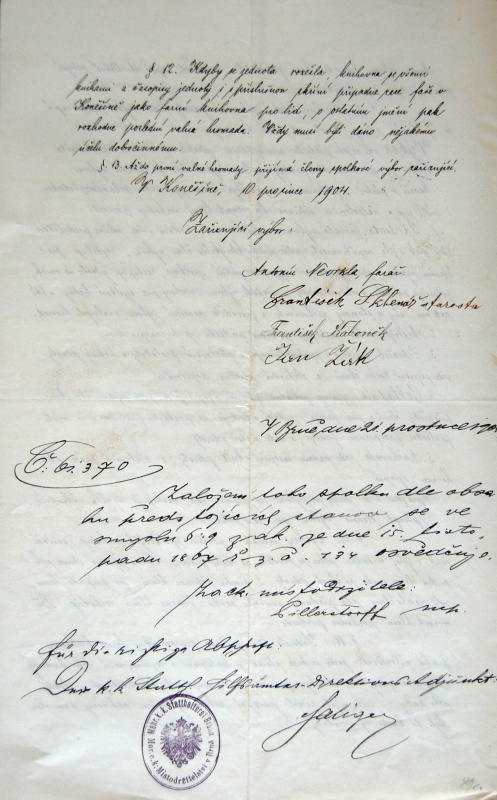 § 12. Kdyby se jednota rozešla, knihovna se všemi
knihami a časopisy jednoty i s příslušnou skříní připadne
v Koněšíně jako farní knihovna pro lid, o ostatním jmění pak
rozhodne poslední valná hromada. Vždy musí býti dáno nějakému
účelu dobročinnému.
§ 13. Až do první valné hromady přijímá členy spolkové výbor zařizující.
V Koněšíně, 10 prosince 1904.
Zařizující výbor:
Antonín farář.
František Sklenář starosta
František
Jan Žák
V Brně, dne 21 prosince
Č. 370
Založení toho spolku dle obsa-
hu předstojících stanov se ve
smyslu § 9 zák. ze dne 15. listo-
padu 1867 ř. z. č. 134 osvědčuje.
Za c. k. místodržitele:
Pillerstorff mp.
Für die richtige Abschrift:
Der k. k. Statth. Hilfsämter-Direktions-Adjunkt:
Mähr. k. k. Statthalterei Brünn
Mor. c. k. Místodržitelství v Brně